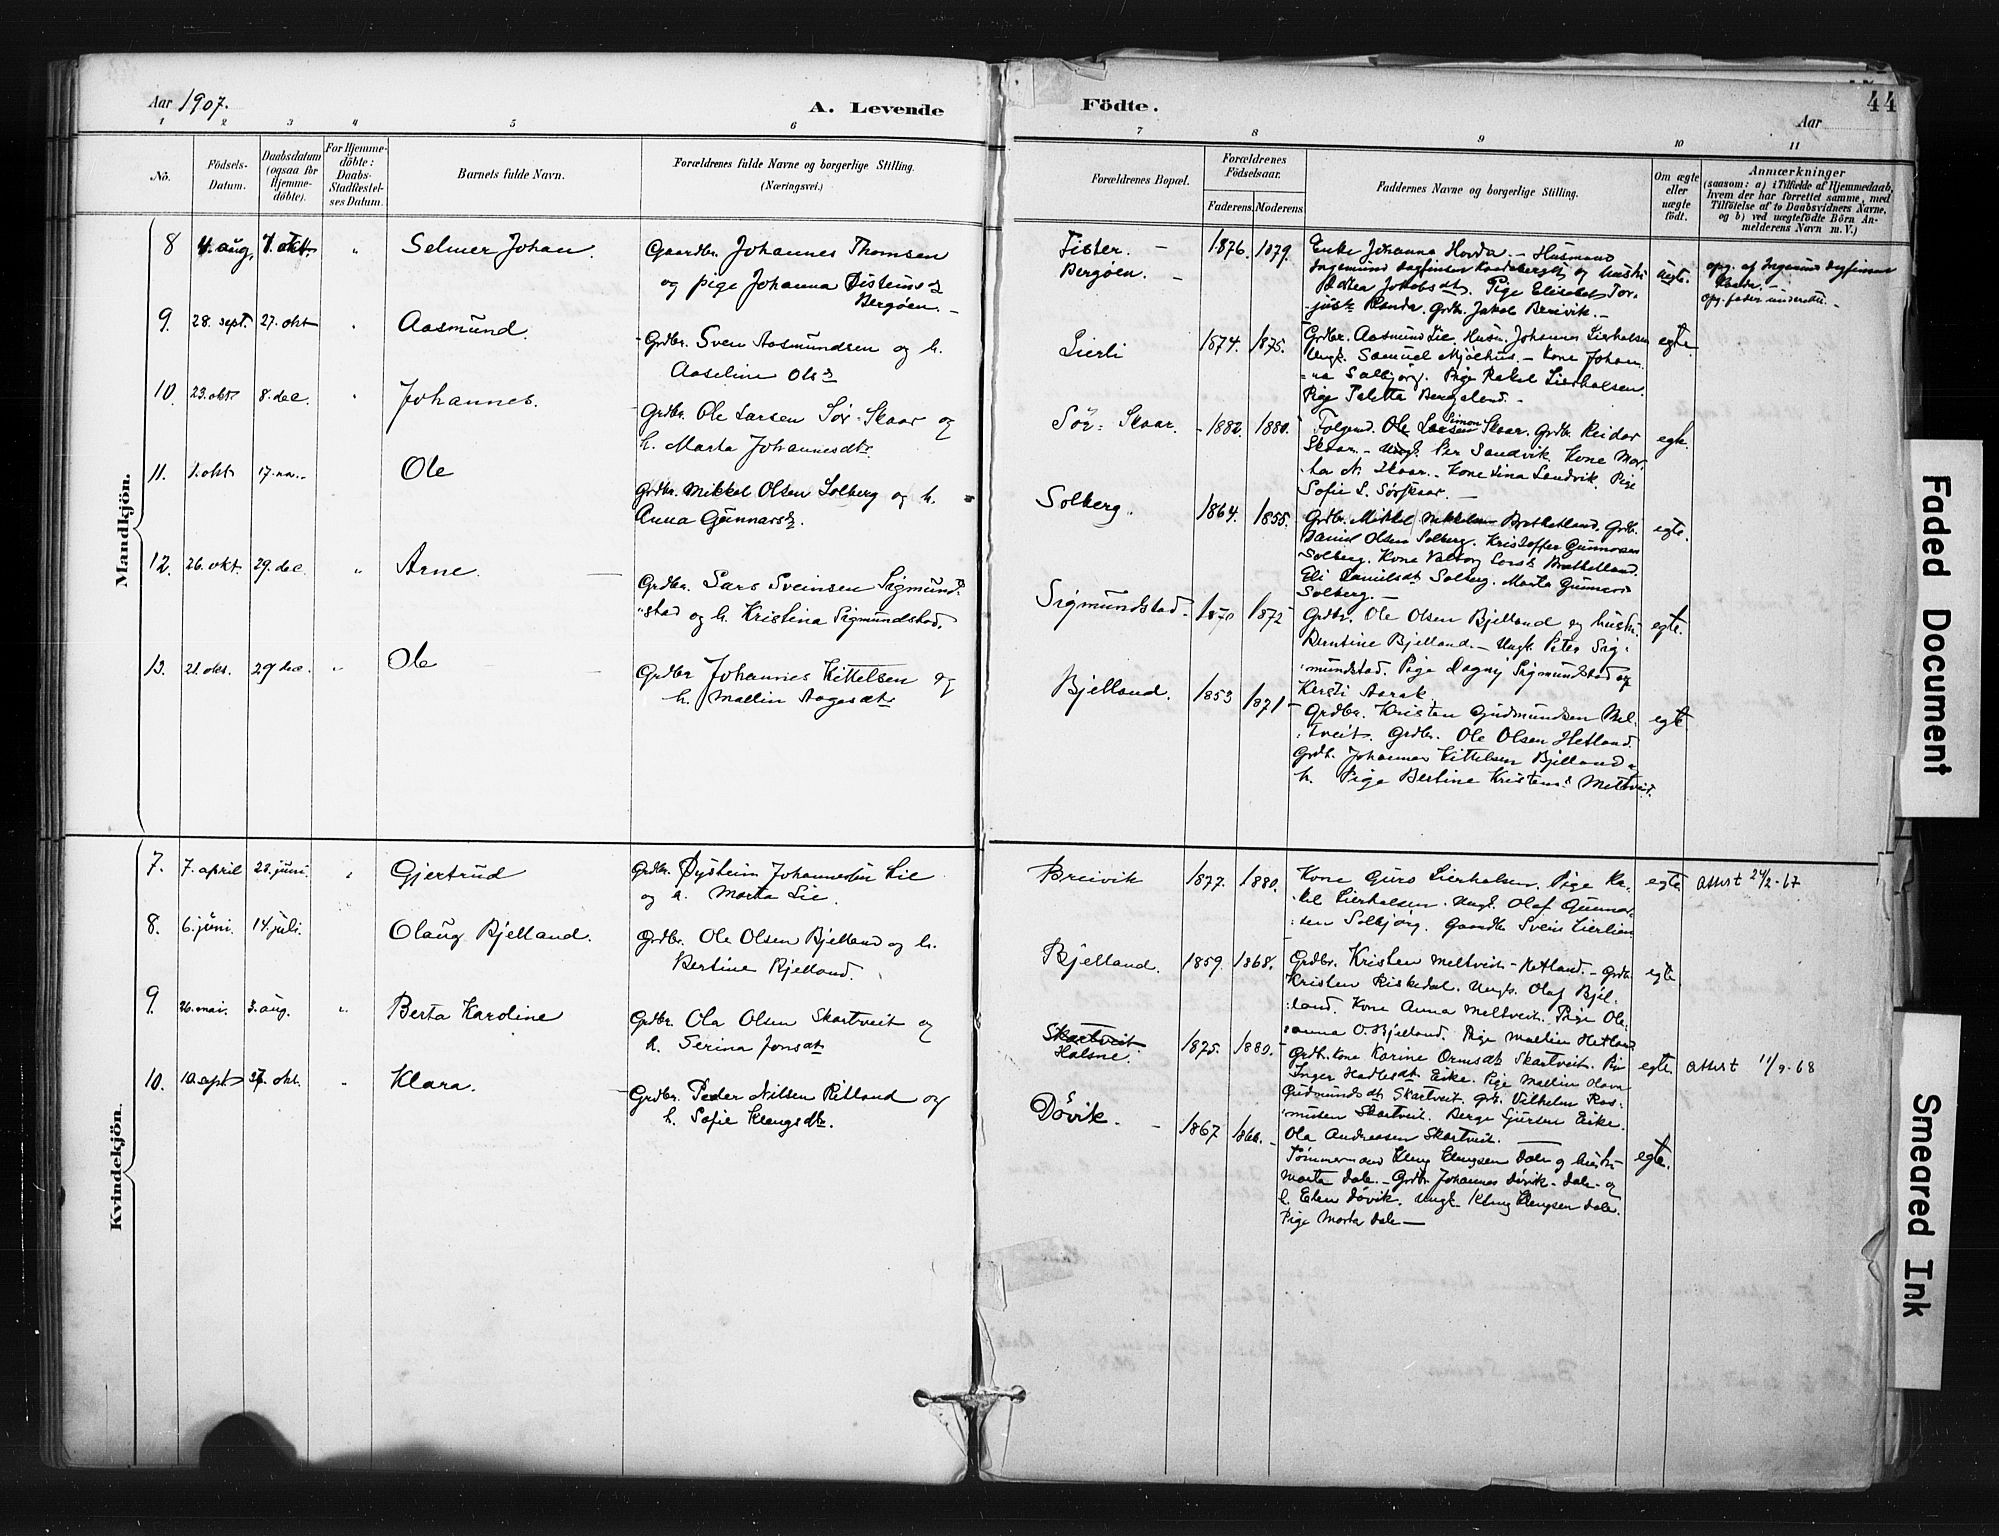 Aar 1907.
A. Levende
Födte.
44
Aar
1 2 3 4 5 6
7 8 9 10 11
No.
Födsels-Datum.
Daabsdatum (ogsaa for Hjemme-döbte).
For Hjemme-döbte: Daabs-Stadfæstel-ses Datum.
Barnets fulde Navn.
Forældrenes fulde Navne og borgerlige Stilling.
(Næringsvei.)
Forældrenes Bopæl.
Forældrenes Födselsaar.
Faderens. Moderens.
Faddernes Navne og borgerlige Stilling.
Om ægte eller uægte födt.
Anmærkninger
(saasom: a) i Tilfælde af Hjemmedaab,
hvem der har forrettet samme, med
Tilföielse af to Daabsvidners Navne,
og b) ved uægtefödte Börn An-
melderens Navn m. V.)
Mandkjön.
8 4. aug. 7. okt. " Selmer Johan. Gaardbr. Johannes Thomsen
og pige Johanna Östeinsd
Bergöen. -
Fister. - 1876. 1879. Enke Johanna Hovda. - Husmand
Bergöen. -
Ingemund Dagfinsen og hustr.
Jakobsdt. Pige Elisabet Tor-
Grdbr. Jakob Breivik. -
uegte.
opg. af Ingemund Dagfinsen
opg. fader underrette. -
9. 28. sept. 27. okt " Aasmund. Grdbr. Sven Aasmundsen og h.
Aaseline Olsd
Lierli 1874. 1875. Grdbr. Aasmund Lie. Husm. Johannes Lierhalsen
Ungk. Samuel Mjölhus. - Kone Johan-
na Solbjörg. Pige Rakel Lierhalsen.
Pige Taletta Bergeland. -
egte.
10. 23. okt 8. dec. " Johannes. Grdbr. Ole Larsen Sör-Skaar og
h. Marta Johannesdt.
Sör-Skaar. - 1882. 1880. Folgemd. Ole Simonsen Skaar. Grdbr. Reidar
Skaar. - Ungk. Per Sandvik. Kone Mar-
ta N. Skaar. - Kone Lina Sandvik. Pige
Sofie L. Sörskaar. -
egte.
11. 1. okt 17. nov. Ole Grdbr. Mikkel Olsen Solberg og h.
Anna Gunnarsd.
Solberg. 1864. 1855. Grdbr. Mikkel Mikkelsen Brathetland. Grdb.
Daniel Olsen Solberg. Kristoffer Gunnarsen
Solberg. Kone Valborg Larsd Bratthetland.
Eli Danielsdt Solberg. Marta Gunnarsd
Solberg. -
egte.
12. 26. okt. 29. dec. " Arne. Grdbr. Lars Sveinsen Sigmund-
stad og h. Kristina Sigmundstad.
Sigmundstad. 1870 1872 Grdbr. Ole Olsen Bjelland og hustr.
Berntine Bjelland. - Ungk. Peter Sig-
mundstad. Pige Dagny Sigmundstad og
Kersti Aarak.
egte.
13. 21. okt. 29 dec. " Ole Grdbr Johannes Kittelsen og
h. Mallin Aagesdt
Bjelland. 1853 1871 Grdbr. Kristen Gudmundsen Mel-
tveit. Grdbr. Ole Olsen Hetland.
Grdb. Johannes Kittelsen Bjelland
h. Pige Bertine Kristensd Meltveit.
egte.
Kvindekjön.
7. 7. april 23. juni. " Gjertrud Grdbr. Öystein Johannessen Lie
og h. Marta Lie.
Breivik 1877. 1880. Kone Guro Lierhalsen. Pige Ra-
kel Lierhalsen. Ungk. Olaf Gunnar-
sen Solbjörg. Gaardb. Svein Lierlien
egte Attest 24/2-67
8. 6. juni. 14. juli. Olaug Bjelland. Grdbr. Ole Olsen Bjelland og h.
Bertine Bjelland.
Bjelland. 1859. 1868. Grdbr. Kristen Meltveit-Hetland. - Grdb.
Kristen Riskedal. Ungk. Olaf Bjel-
land. Kone Anna Meltveit. Pige Ole-
anna O. Bjelland. Pige Mallin Hetland
egte
9. 26. mai. 3. aug. " Berta Karoline Grdbr. Ola Olsen Skartveit og
h. Serina Jonsdt
Skartveit
Halsne. 1875. 1880. Grdb. kone Karine Ormsdt Skartveit. Pige
Inger Hadlesdt Eike. Pige Mallin Olava
Gudmundsdt Skartveit. Grdb. Vilhelm Ras-
musen Skartveit. Berge Sjursen Eike.
Ola Andreasen Skartveit.
egte. Attest 11/9-68
10. 10. sept. okt. " Klara. Grdbr. Peder Nilsen Ritland og
h. Sofie Klengsdt.
Dövik. - 1867 Tömmermand Kleng Klengsen Dale og hustr.
Marta Dale. - Grdbr. Johannes Dövik-Dale- og
h. Elen Dövik. Ungk. Kleng Klengsen Dale.
Pige Marta Dale -
egte.
Faded Document
Smeared Ink